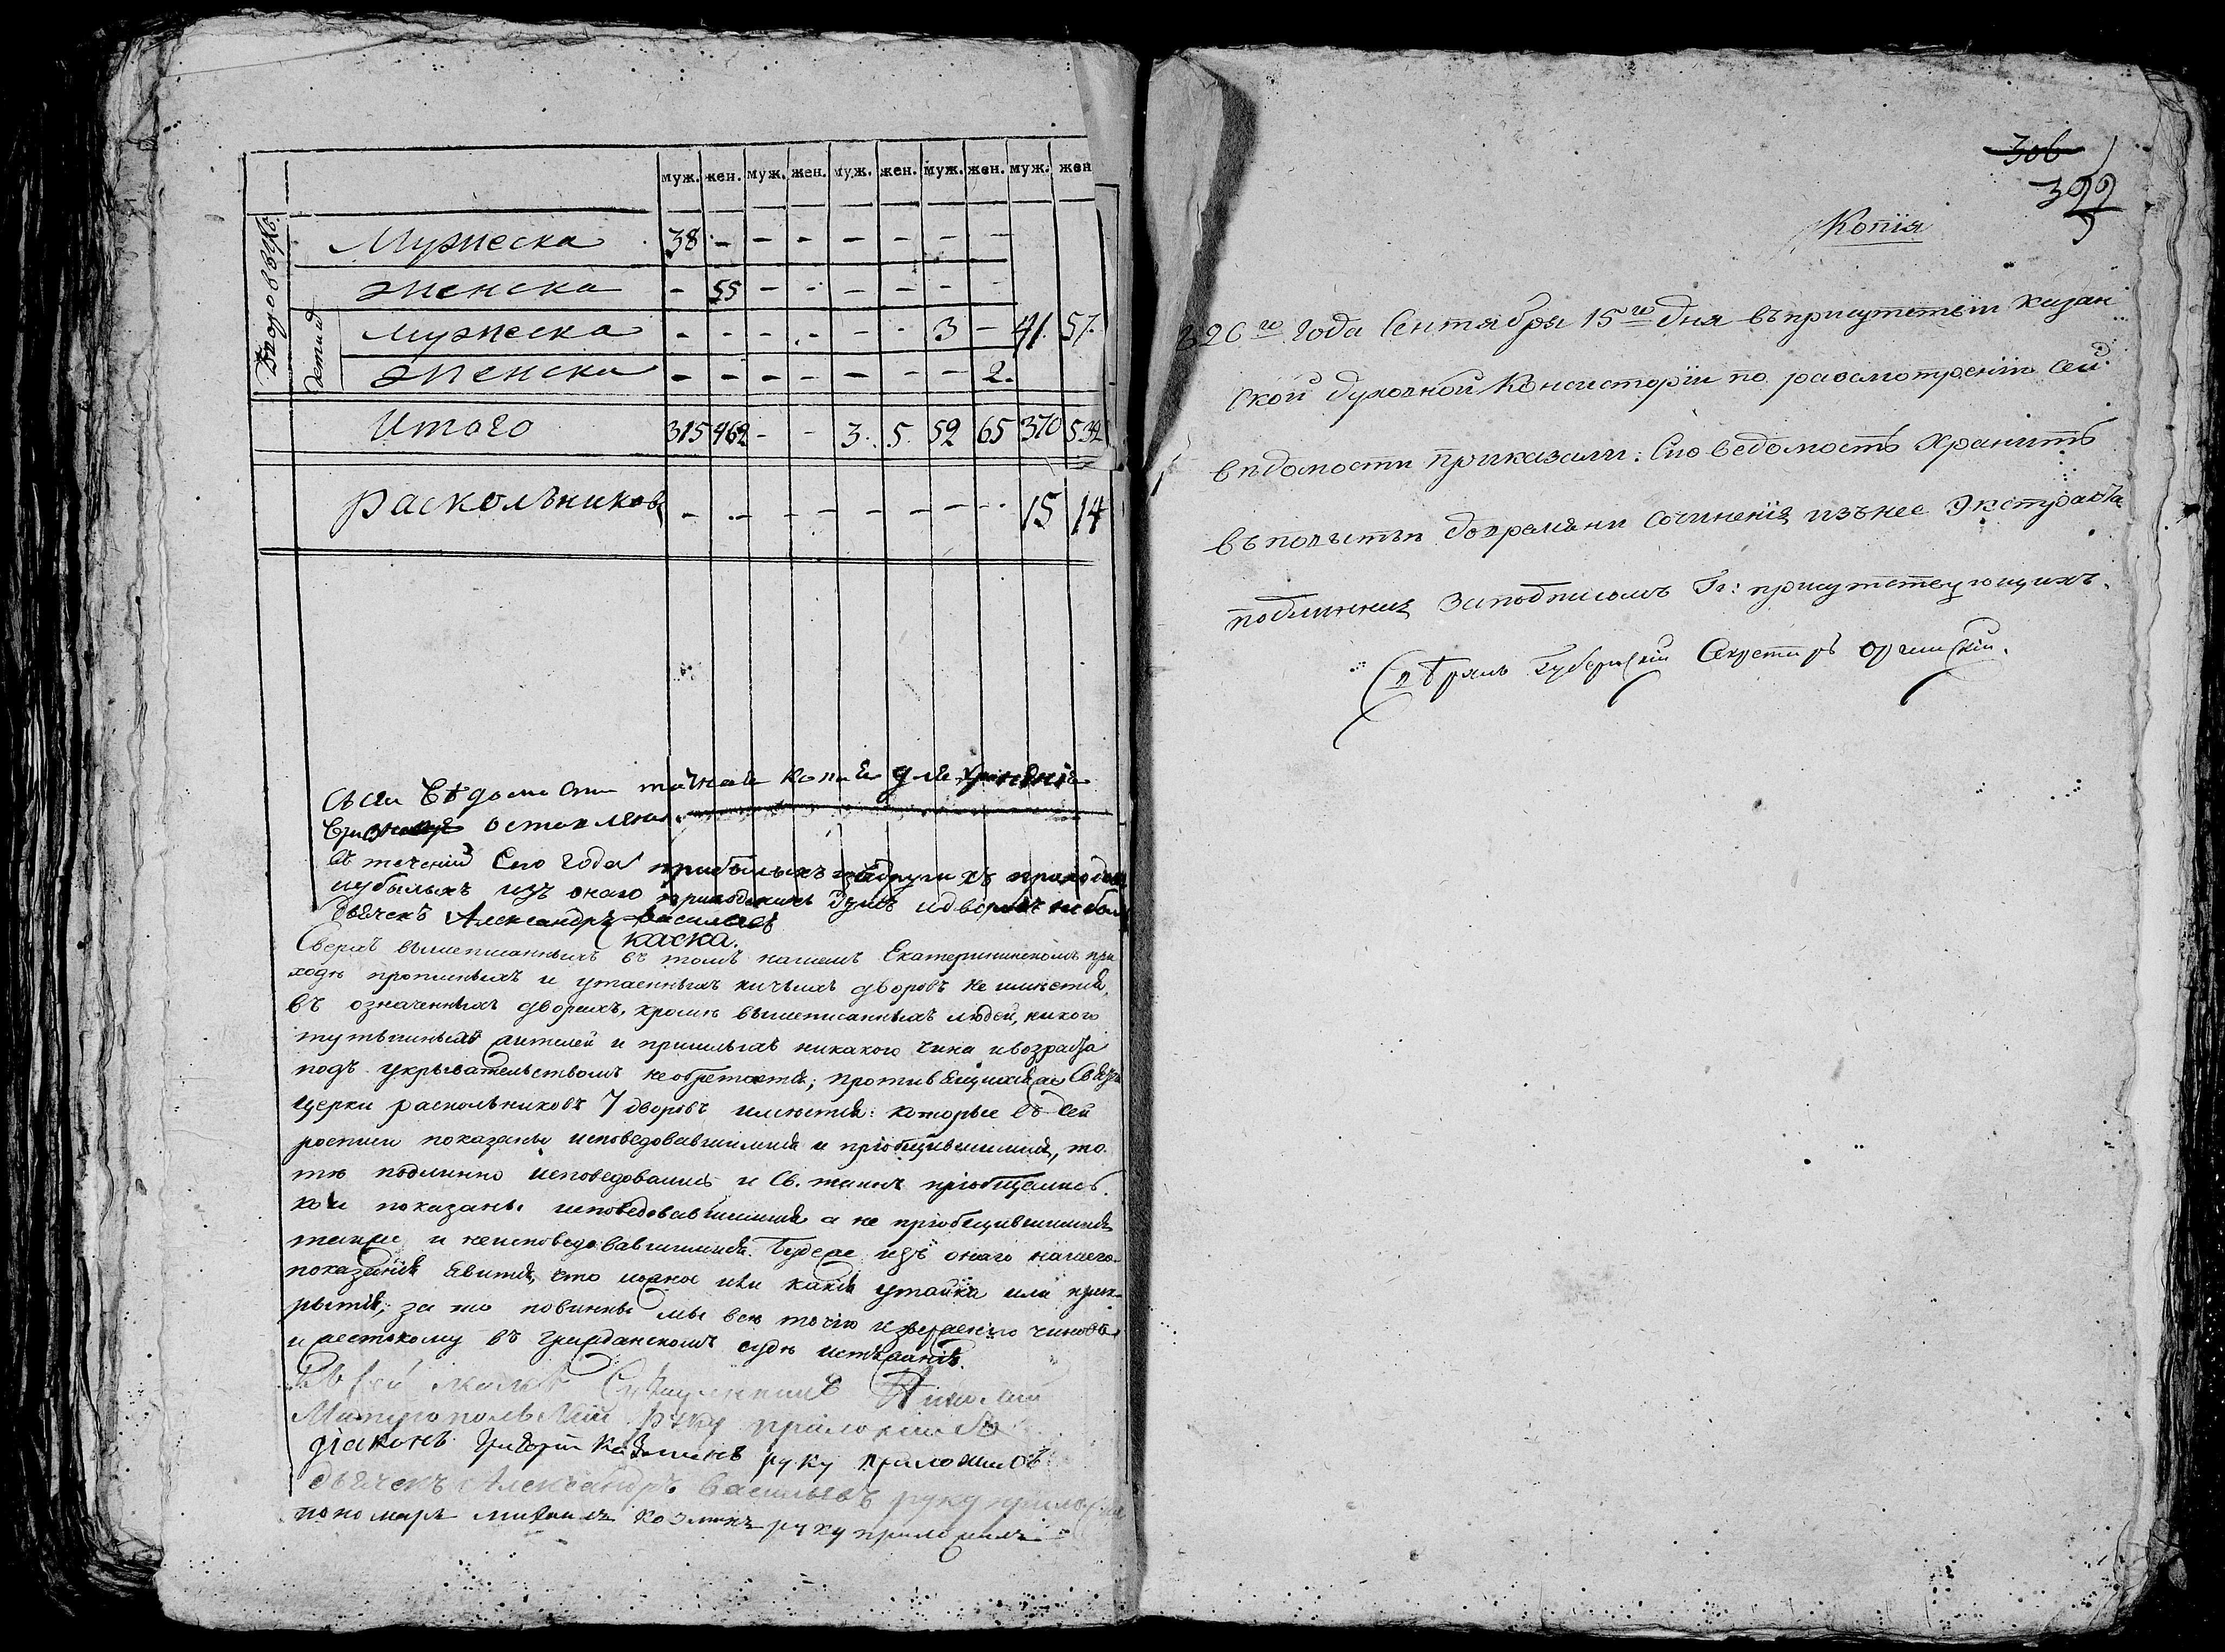 муж. жен. муж. жен. муж. жен. муж. жен. муж. жен
Дворовыхъ
Мужеска 38 - - - - - - -
Женска - 55 - - - - - -
детей
Мужеска - - - - - - 3 - 41. 57.
Женска - - - - - - - 2.
Итого 315 462 - - 3. 5. 52 65 370 532
Раскольниковъ - - - - - - - - 15 14
Съ сей Вѣдомости точная копия для хранения
оставлена.
Въ течении Сего года прибылыхъ къ приходу
и убылыхъ изъ онаго приходскихъ душъ и дворовъ не было
Дьячекъ Александръ Васильевъ
Сказка.
Сверхъ вышеписанныхъ въ томъ нашемъ Екатерининскомъ при
ходѣ прописныхъ и утаенныхъ ничьихъ дворовъ не имѣется,
въ означенныхъ дворахъ, кромѣ вышеписанныхъ людей, никого
жителей и пришлыхъ никакого чина и возраста
подъ укрывательствомъ необретается; противящихся же Святой
церкви раскольниковъ 7 дворовъ имѣется: которые въ сей
росписи показаны исповедовавшимися и приобщившимися, то
тѣ подлинно исповедовались и Св. таинъ приобщались.
кои показаны исповедовавшимися а не приобщившимися
также и неисповедовавшимися. Буде же изъ онаго нашего
показания явится, что ложное или какая утайка или прик
рытия, за то повинны мы всеконечно извержению чиновъ
и жестокому въ гражданскомъ судѣ истязанию.
Къ сей Священникъ Николай
Митропольский руку приложилъ
Диаконъ Григорий руку приложилъ
дьячекъ Александръ Васильевъ руку приложилъ
пономарь Михаилъ Козминъ руку приложилъ
306
322
Копїя
826го года Сентября 15го дня въ присутствїи Казан
ской духовной Консисторїи по разсмотренїю сей
вѣдомости приказали: Сию ведомость Хранить
въ повытьѣ до времяни Сочиненїя изъ нее Экстракта
подлинная за подписомъ Гг: присутствующихъ.
Скѣрялъ Губернский Секретарь